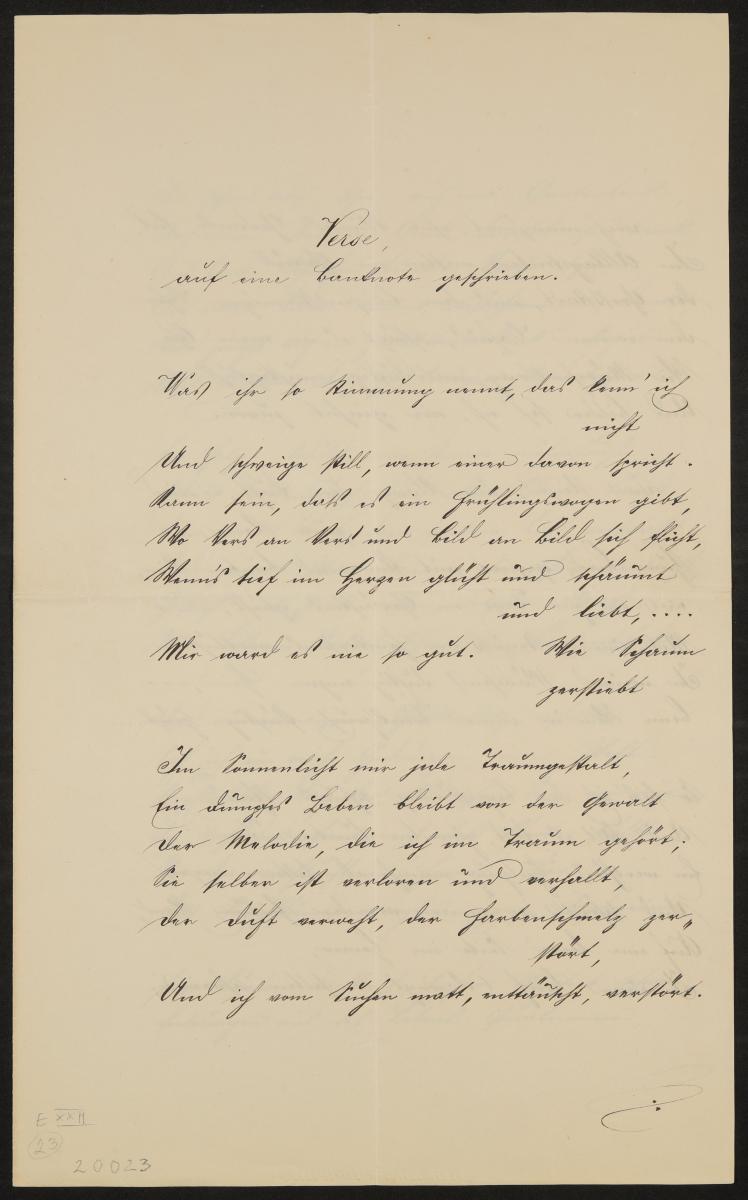 Verse,
auf eine Banknote geschrieben.
Was ihr so Stimmung nennt, das kenn' ich
nicht
Und schweige still, wenn einer davon spricht.
Kann sein, daß es ein Frühlingswogen gibt,
Wo Vers an Vers und Bild an Bild sich flicht,
Wenn's tief im Herzen glüht und schäumt
und liebt, ....
Mir ward es nie so gut. Wie Schaum
zerstiebt
Im Sonnenlicht mir jede Traumgestalt,
Ein dumpfes Beben bleibt von der Gewalt
Der Melodie, die ich im Traum gehört;
Sie selber ist verloren und verhallt,
Der Duft verweht, der Farbenschmelz zer„
stört,
Und ich vom Suchen matt, enttäuscht, verstört.
./.
E XXII.
23
20023